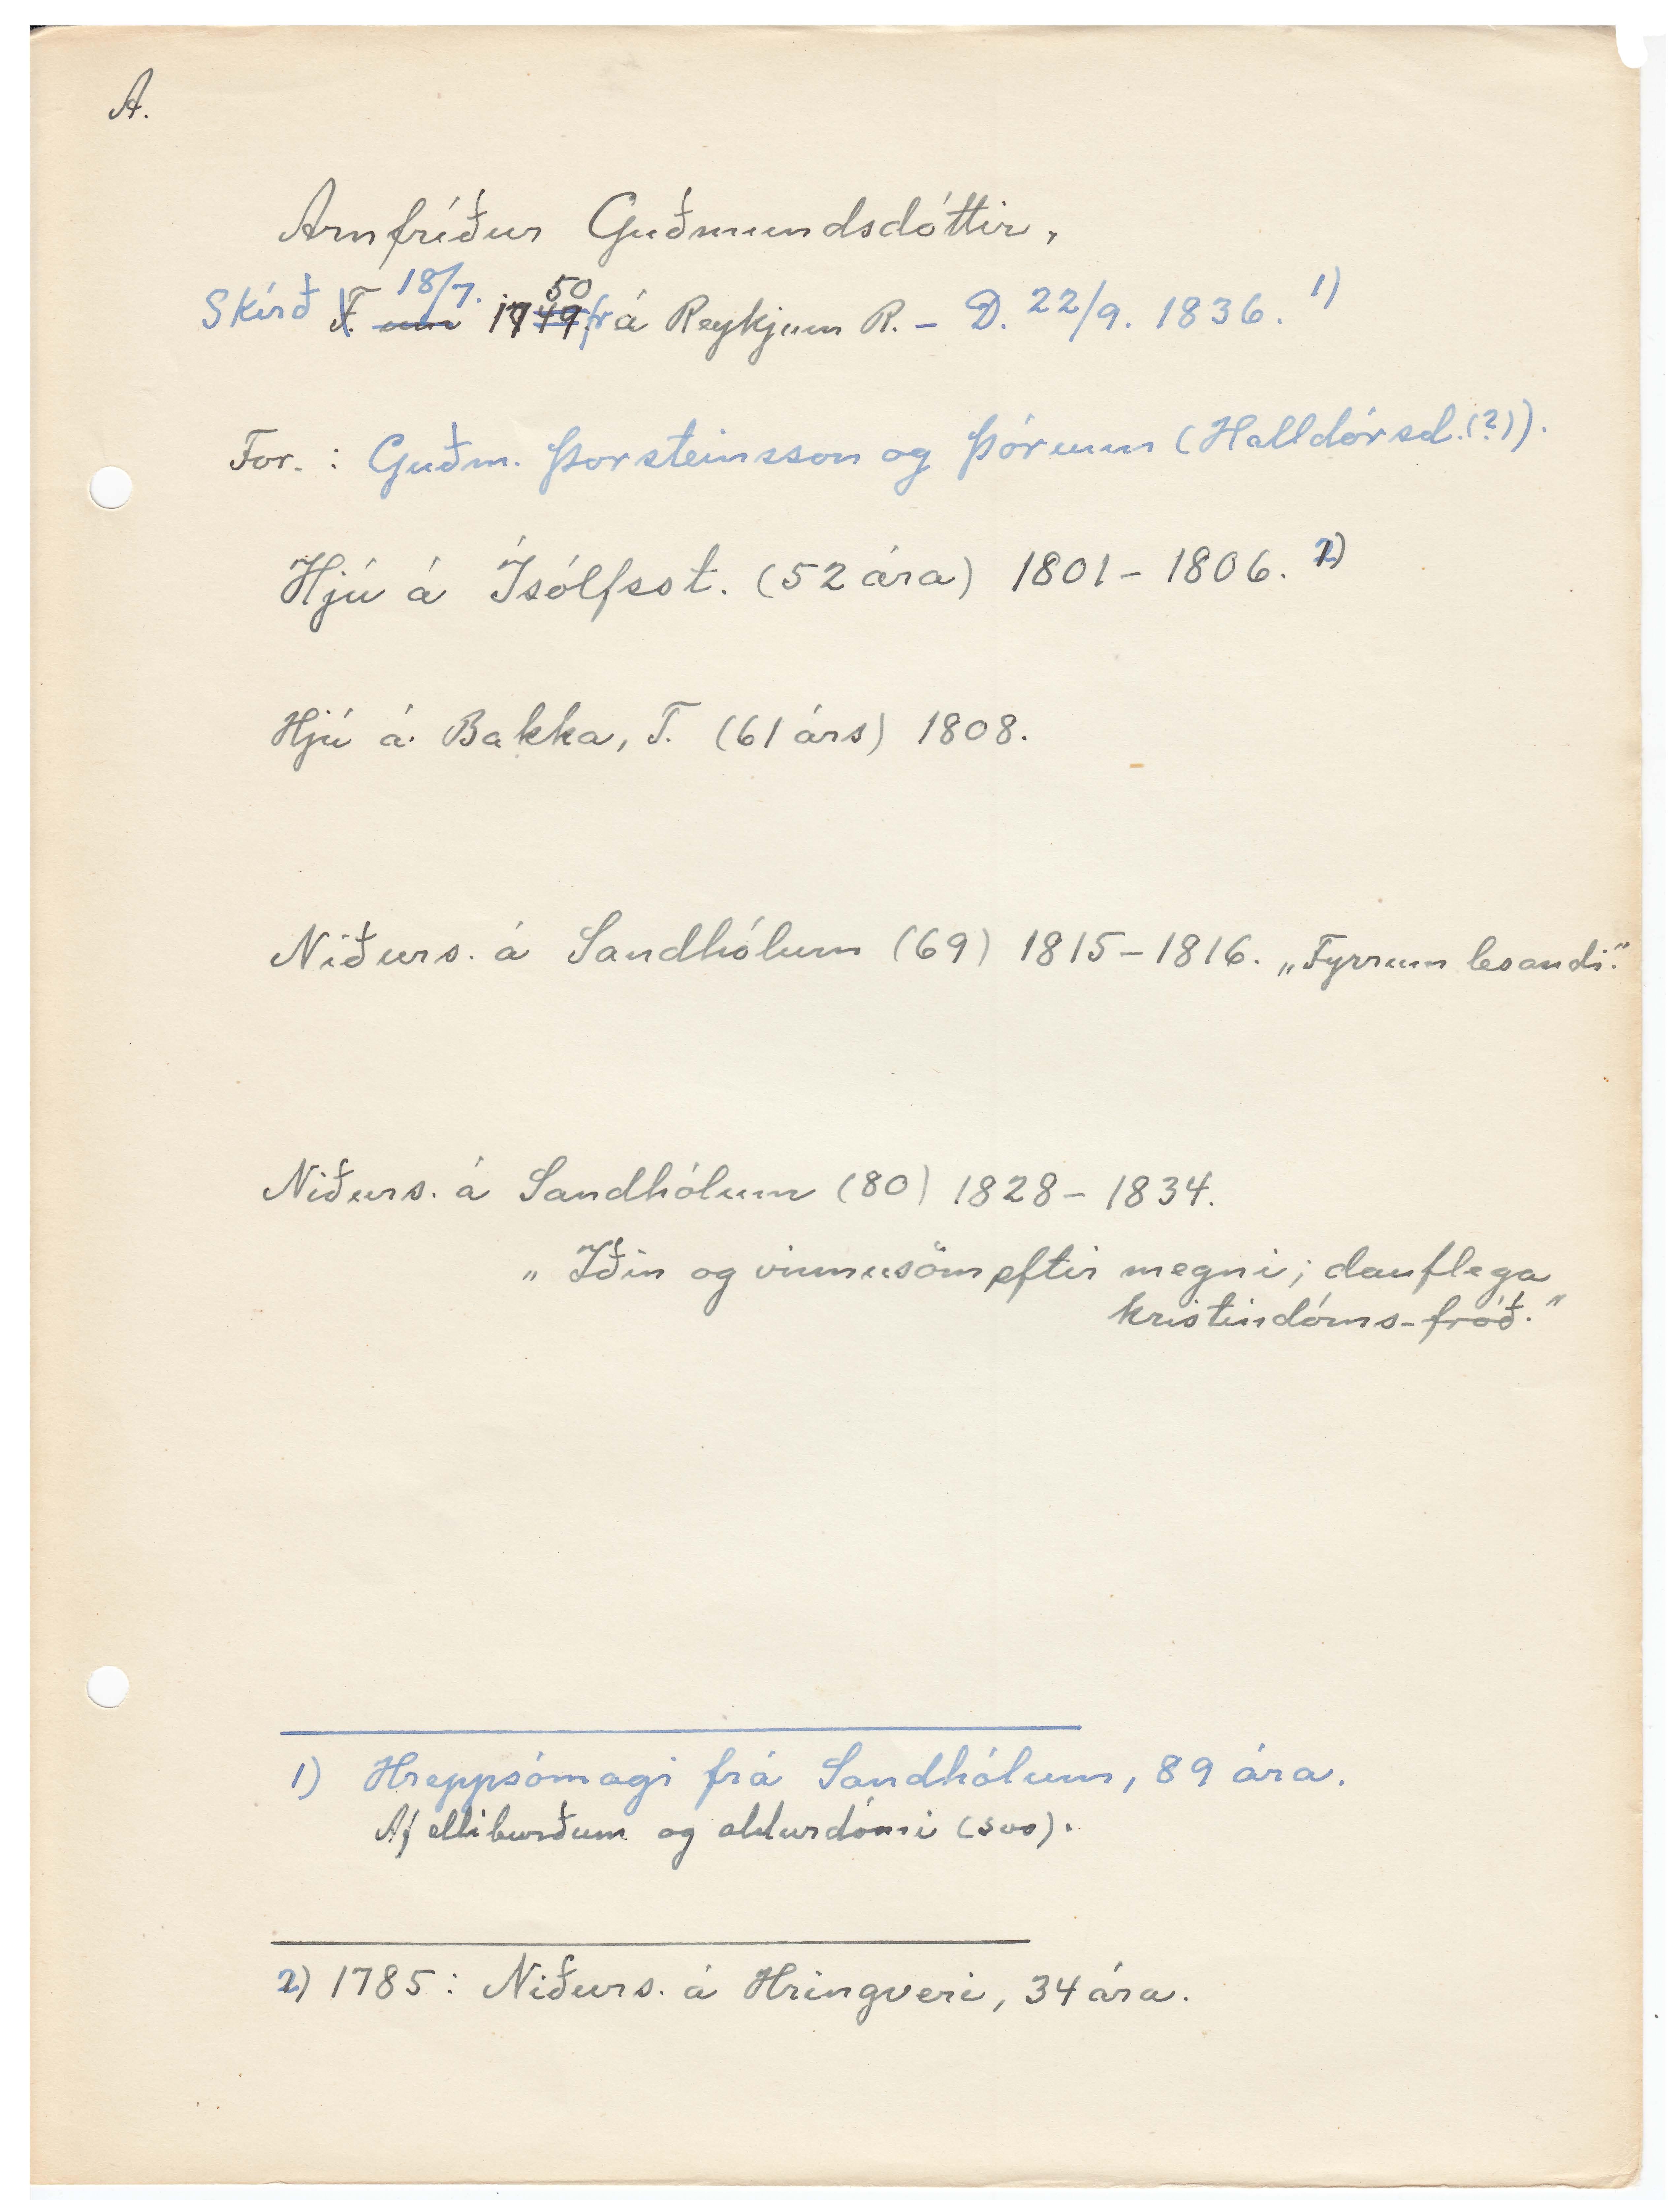 A.
Arnfríður Guðmundsdóttir,
Skírð 18/7. 1750 frá Reykjum R. – D. 22/9. 1836. 1)
For. : Guðm. Þorsteinsson og Þórunn (Halldórsd.(?)).
Hjú á Ísólfsst. (52 ára) 1801 – 1806. 2)
Hjú á Bakka, T. (61 árs) 1808.
Niðurs. á Sandhólum (69) 1815 – 1816. „Fyrrum lesandi."
Niðurs. á Sandhólum (80) 1828 – 1834.
„Iðin og vinnusöm eftir megni; dauflega
kristindóms-fróð."
1) Hreppsómagi frá Sandhólum, 89 ára.
Af elliburðum og aldurdómi (svo).
2) 1785 : Niðurs. á Hringveri, 34 ára.